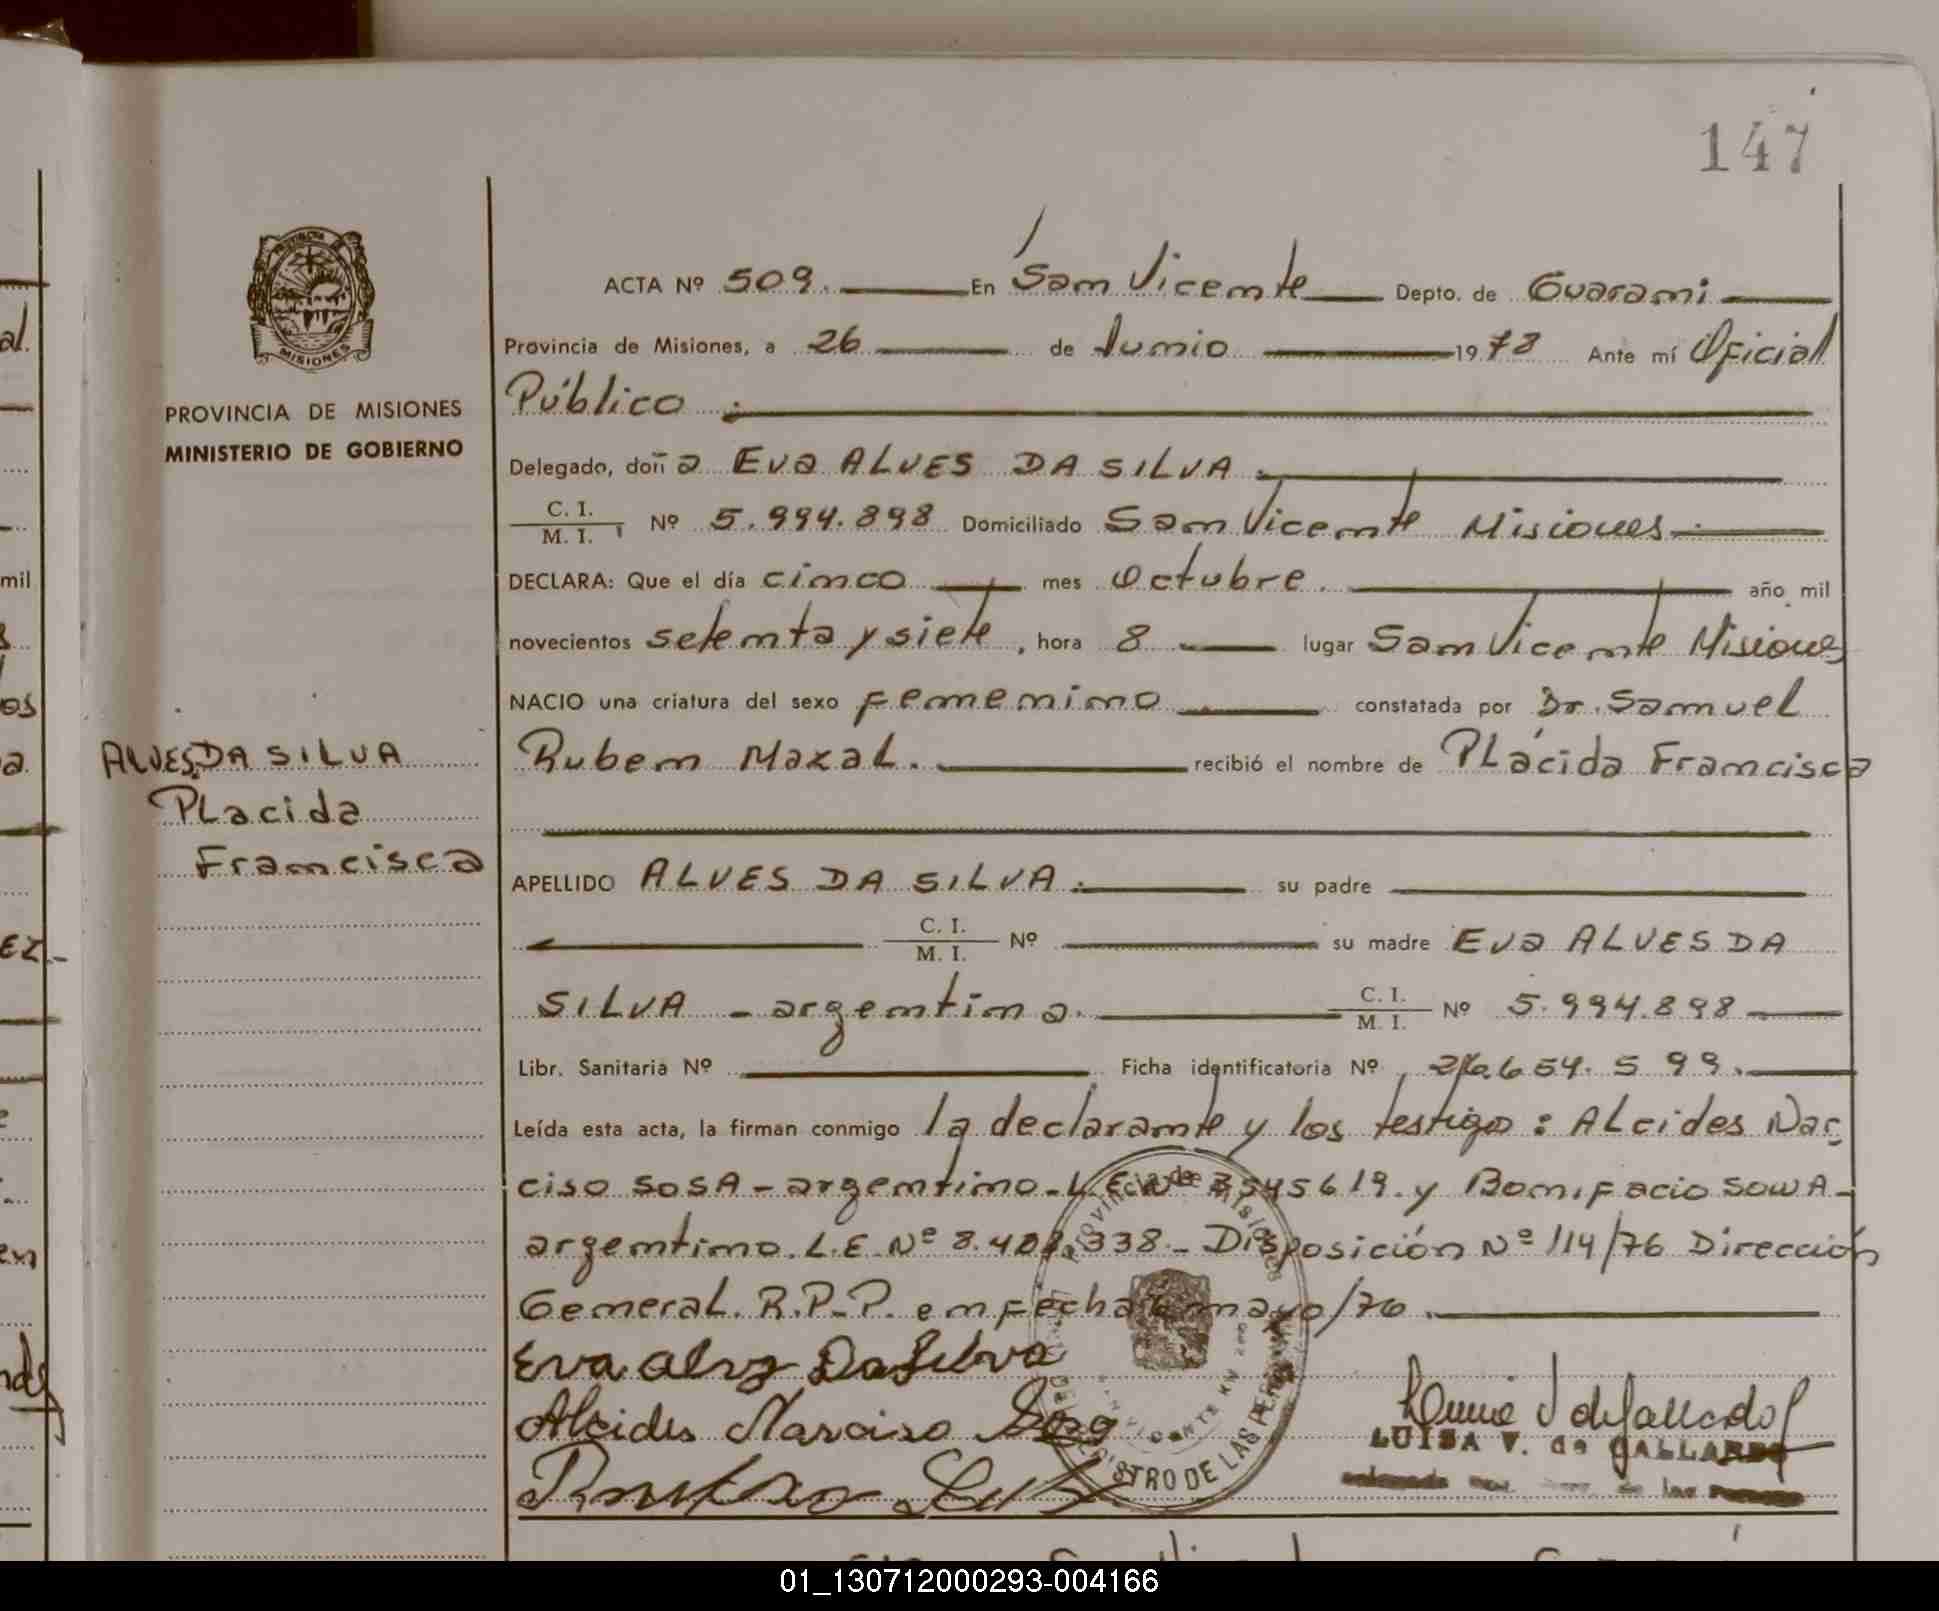 147
ACTA Nº 509. En San Vicente Depto. de Guarani
Provincia de Misiones, a 26 de Junio 1978 Ante mí Oficial
Público
PROVINCIA DE MISIONES
MINISTERIO DE GOBIERNO
Delegado, doña Eva ALVES DA SILVA.
C. I.
M. I. Nº 5.994.898 Domiciliado San Vicente Misiones
DECLARA: Que el día cinco mes Octubre. año mil
novecientos setenta y siete, hora 8 lugar San Vicente Misiones
NACIO una criatura del sexo femenino constatada por Dr. Samuel
Ruben Maxal. recibió el nombre de PLácida Francisca
ALVES DA SILVA
PLacida
Francisca
APELLIDO ALVES DA SILVA. su padre
C. I.
M. I. Nº su madre Eva ALVES DA
SILVA - argentina. C. I.
M. I. Nº 5.994.898
Libr. Sanitaria Nº Ficha identificatoria Nº 26.654.599.
Leída esta acta, la firman conmigo la declarante y los testigo: ALcides Nar
ciso SOSA - argentino - L.E. Nº 3545619. y Bonifacio SOWA -
argentino. L.E. Nº 8.408.338 - Disposición Nº 114/76 Dirección
GeneraL. R.P.P. en fecha mayo/76.
Eva Alvz Da Silva
Alcides Narciso Sosa
LUISA V. de GALLARDO
MISIONES
REGISTRO DE LAS PERSONAS
01_130712000293-004166